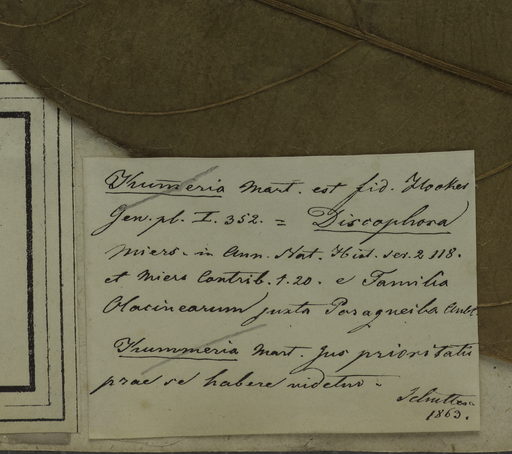 Kummeria Mart. est fid. Hooker
Gen. pl. I. 352. = Discophora
Miers. in Ann. Nat. Hist. ser. 2 118.
et Miers Contrib. 1. 20. e Familia
Olacinearum juxta Paraqueiba Aubl
Kummeria Mart. jus prioritatis
prae se habere videtur.
1863.